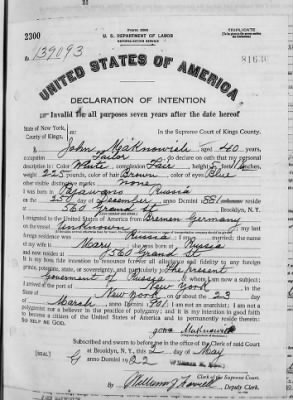 2300
Form 2202
U. S. DEPARTMENT OF LABOR
NATURALIZATION SERVICE
TRIPLICATE
No. 139093
UNITED STATES OF AMERICA
DECLARATION OF INTENTION
Invalid for all purposes seven years after the date hereof
State of New York,
County of Kings,
ss:
In the Supreme Court of Kings County.
I, John Maknowich aged 40 years,
occupation Tailor, do declare on oath that my personal
description is: Color White, complexion Fair, height feet inches,
weight 225 pounds, color of hair Brown, color of eyes Blue
other visible distinctive marks None
I was born in Russia
on the 25 day of December, anno Domini 1881; I now reside
at 560 Grand St Brooklyn, N. Y.
I emigrated to the United States of America from Bremen Germany
on the vessel Unknown; my last
foreign residence was Russia; I am married; the name
of my wife is Mary; she was born at Russia
and now resides at 560 Grand St
It is my bona fide intention to renounce forever all allegiance and fidelity to any foreign
prince, potentate, state, or sovereignty, and particularly to The present
Government of Russia, of whom I am now a subject;
I arrived at the port of New York, in the
State of New York on or about the 23 day
of March, anno Domini 1901; I am not an anarchist; I am not a
polygamist nor a believer in the practice of polygamy; and it is my intention in good faith
to become a citizen of the United States of America and to permanently reside therein:
SO HELP ME GOD.
John Maknowich
Subscribed and sworn to before me in the office of the Clerk of said Court
at Brooklyn, N. Y., this 2 day of May
[SEAL] anno Domini 1922
Clerk of the Supreme Court.
By Deputy Clerk.